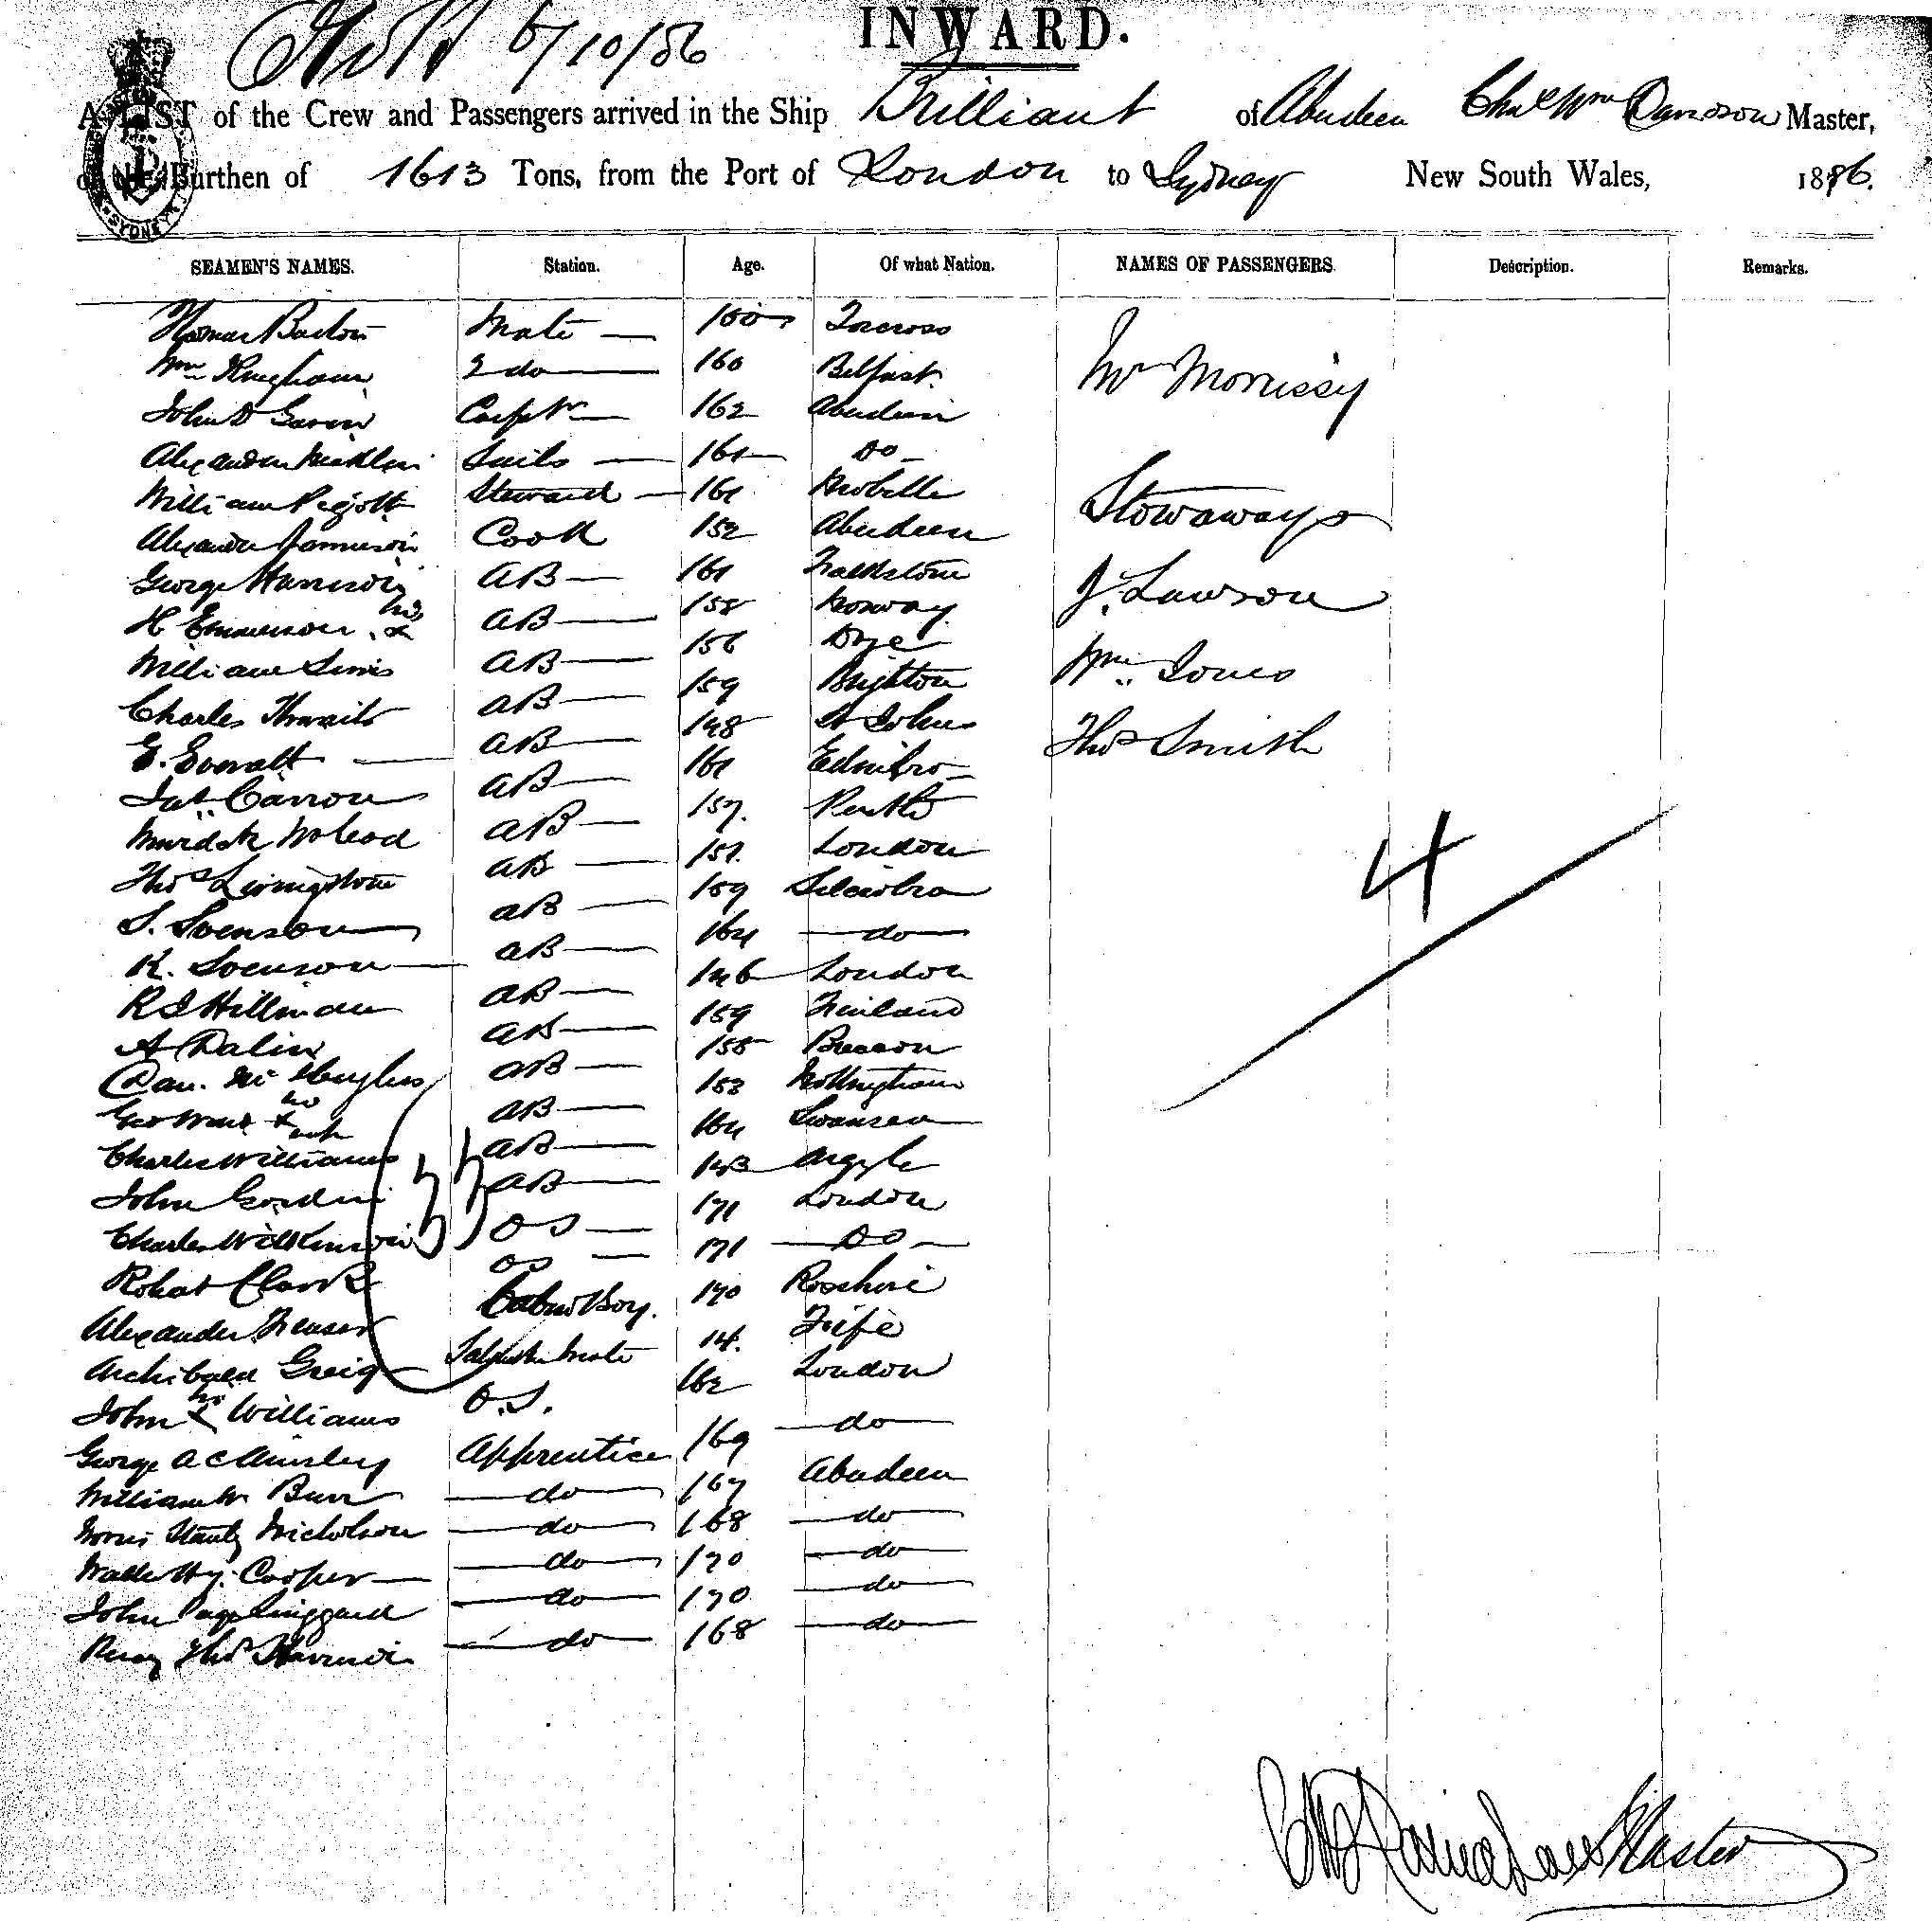 6/10/86
INWARD.
A LIST of the Crew and Passengers arrived in the Ship Brilliant of Aberdeen Chas Wm Davidson Master,
of the Burthen of 1613 Tons, from the Port of London to Sydney New South Wales, 1886.
SEAMEN'S NAMES. Station. Age. Of what Nation. NAMES OF PASSENGERS. Description. Remarks.
Thomas Barton Mate 155 Torcross
Wm Kingham 2 do 160 Belfast Mr Morrissy
John D Gavin Carptr 162 Aberdeen
Alexander Sails 161 Do
William Pigott Steward 161 Stowaways
Alexander Jamieson Cook 152 Aberdeen
George Harrison AB 161 Folkstone J. Lawson
H Emmerson his x AB 158 Norway
William Sims AB 156 Wm Jones
Charles Thwaits AB 159 Brighton
E. Everatt AB 148 St Johns Thos Smith
Jas Carron AB 161 Edinbro
Murdck McLeod AB 157 Perth
Thos Livingstone AB 157 London
S. Svenson AB 159
K. Svenson AB 164 do
R J Hillman AB 146 London
A Dalin AB 159 Finland
Dan. AB 155 Brecon
Geo his x mark AB 153 Nottingham
Charles Williams AB 164 Swansea
John Gordon AB 143 Argyle
Charles Wilkinson OS 171 London
Robert Clark OS 171 Do
Alexander Fraser Cabin Boy. 170 Rosshire
Archibald Greig Mate 14. Fife
John his x Williams O.S. 162 London
George A C Ainsley Apprentice 169 do
William W Burr do 167 Aberdeen
Nicholson do 168 do
Walter Hy. Cooper do 170 do
John Page do 170 do
Percy Thos Harrison do 168 do
4
Master